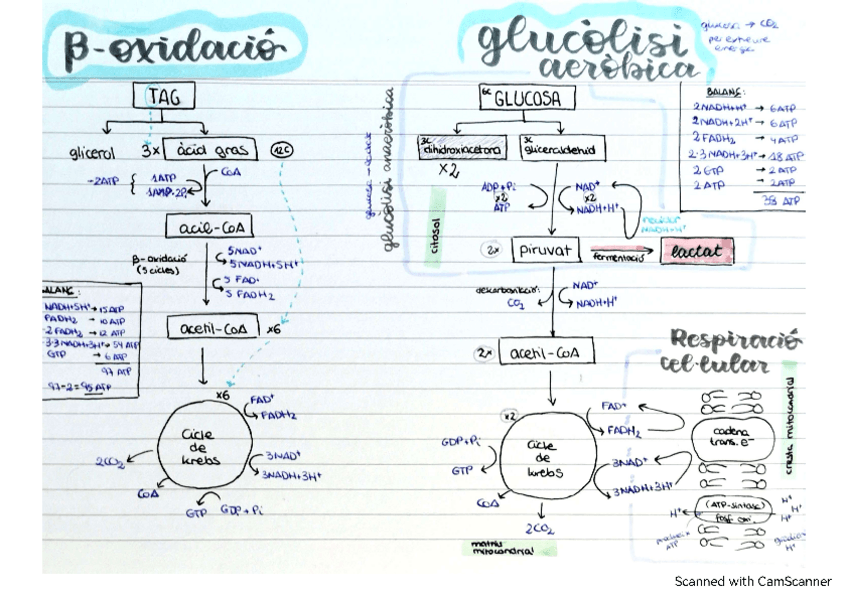 β-oxidació
TAG
glicerol
3x
àcid gras
12C
-2ATP
1ATP
CoA
acil-CoA
β-oxidació
(5 cicles)
5NAD⁺
5NADH+5H⁺
5 FAD⁺
5 FADH₂
BALANÇ:
NADH+5H⁺ → 15 ATP
FADH₂ → 10 ATP
2 FADH₂ → 12 ATP
3·3 NADH+3H⁺ → 54 ATP
GTP → 6 ATP
97 ATP
97-2 = 95 ATP
acetil-CoA
x6
x6
Cicle
de
krebs
FAD⁺
FADH₂
3NAD⁺
3NADH+3H⁺
GDP+Pi
GTP
CoA
2CO₂
glucòlisi
aeròbica
glucosa → CO₂
per extreure
energia
glucòlisi anaeròbica
6C
GLUCOSA
3C
dihidroxiacetona
x2
3C
gliceraldehid
BALANÇ:
2NADH+H⁺ → 6ATP
2NADH+2H⁺ → 6ATP
2 FADH₂ → 4ATP
2·3 NADH+3H⁺ → 18 ATP
2 GTP → 2ATP
2 ATP → 2ATP
38 ATP
citosol
ADP+Pi
x2
ATP
NAD⁺
x2
NADH+H⁺
NADH+H⁺
2x
piruvat
fermentació
lactat
CO₂
NAD⁺
NADH+H⁺
2x
acetil-CoA
x2
Cicle
de
krebs
GDP+Pi
GTP
CoA
2CO₂
matriu
mitocondrial
Respiració
cel·lular
FAD⁺
FADH₂
3NAD⁺
3NADH+3H⁺
cadena
trans. e⁻
cresta mitocondrial
(ATP-sintasa)
fosf. oxi.
H⁺
H⁺
H⁺
H⁺
ATP
H⁺
Scanned with CamScanner